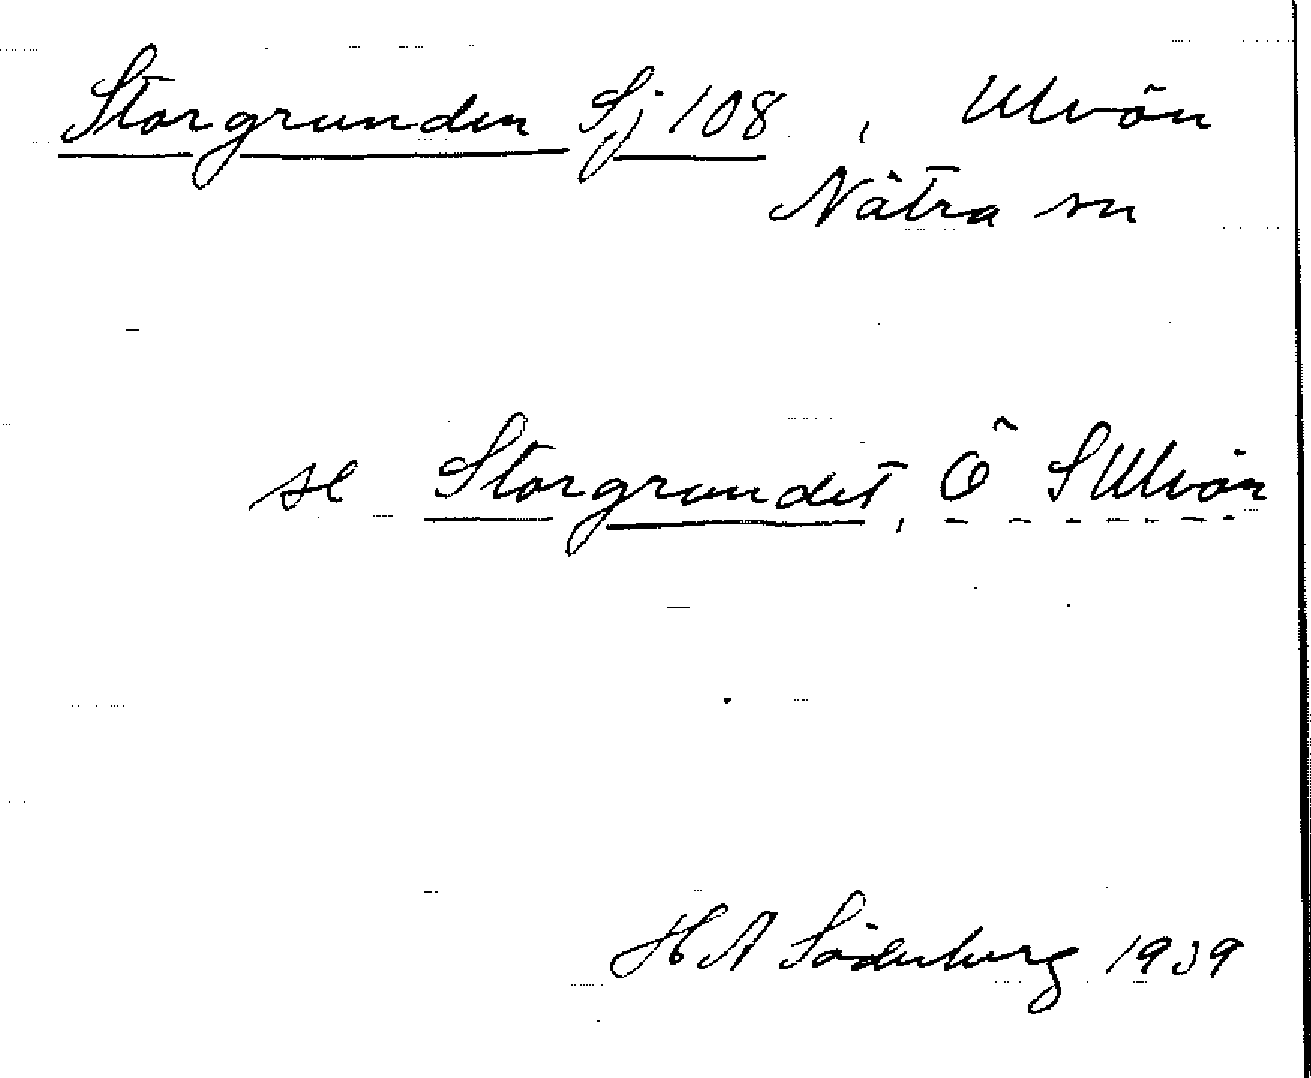 Storgrunden Sj 108 , Ulvön
Nätra sn
se Storgrundet, Ö S Ulvön
H A Söderberg 1939